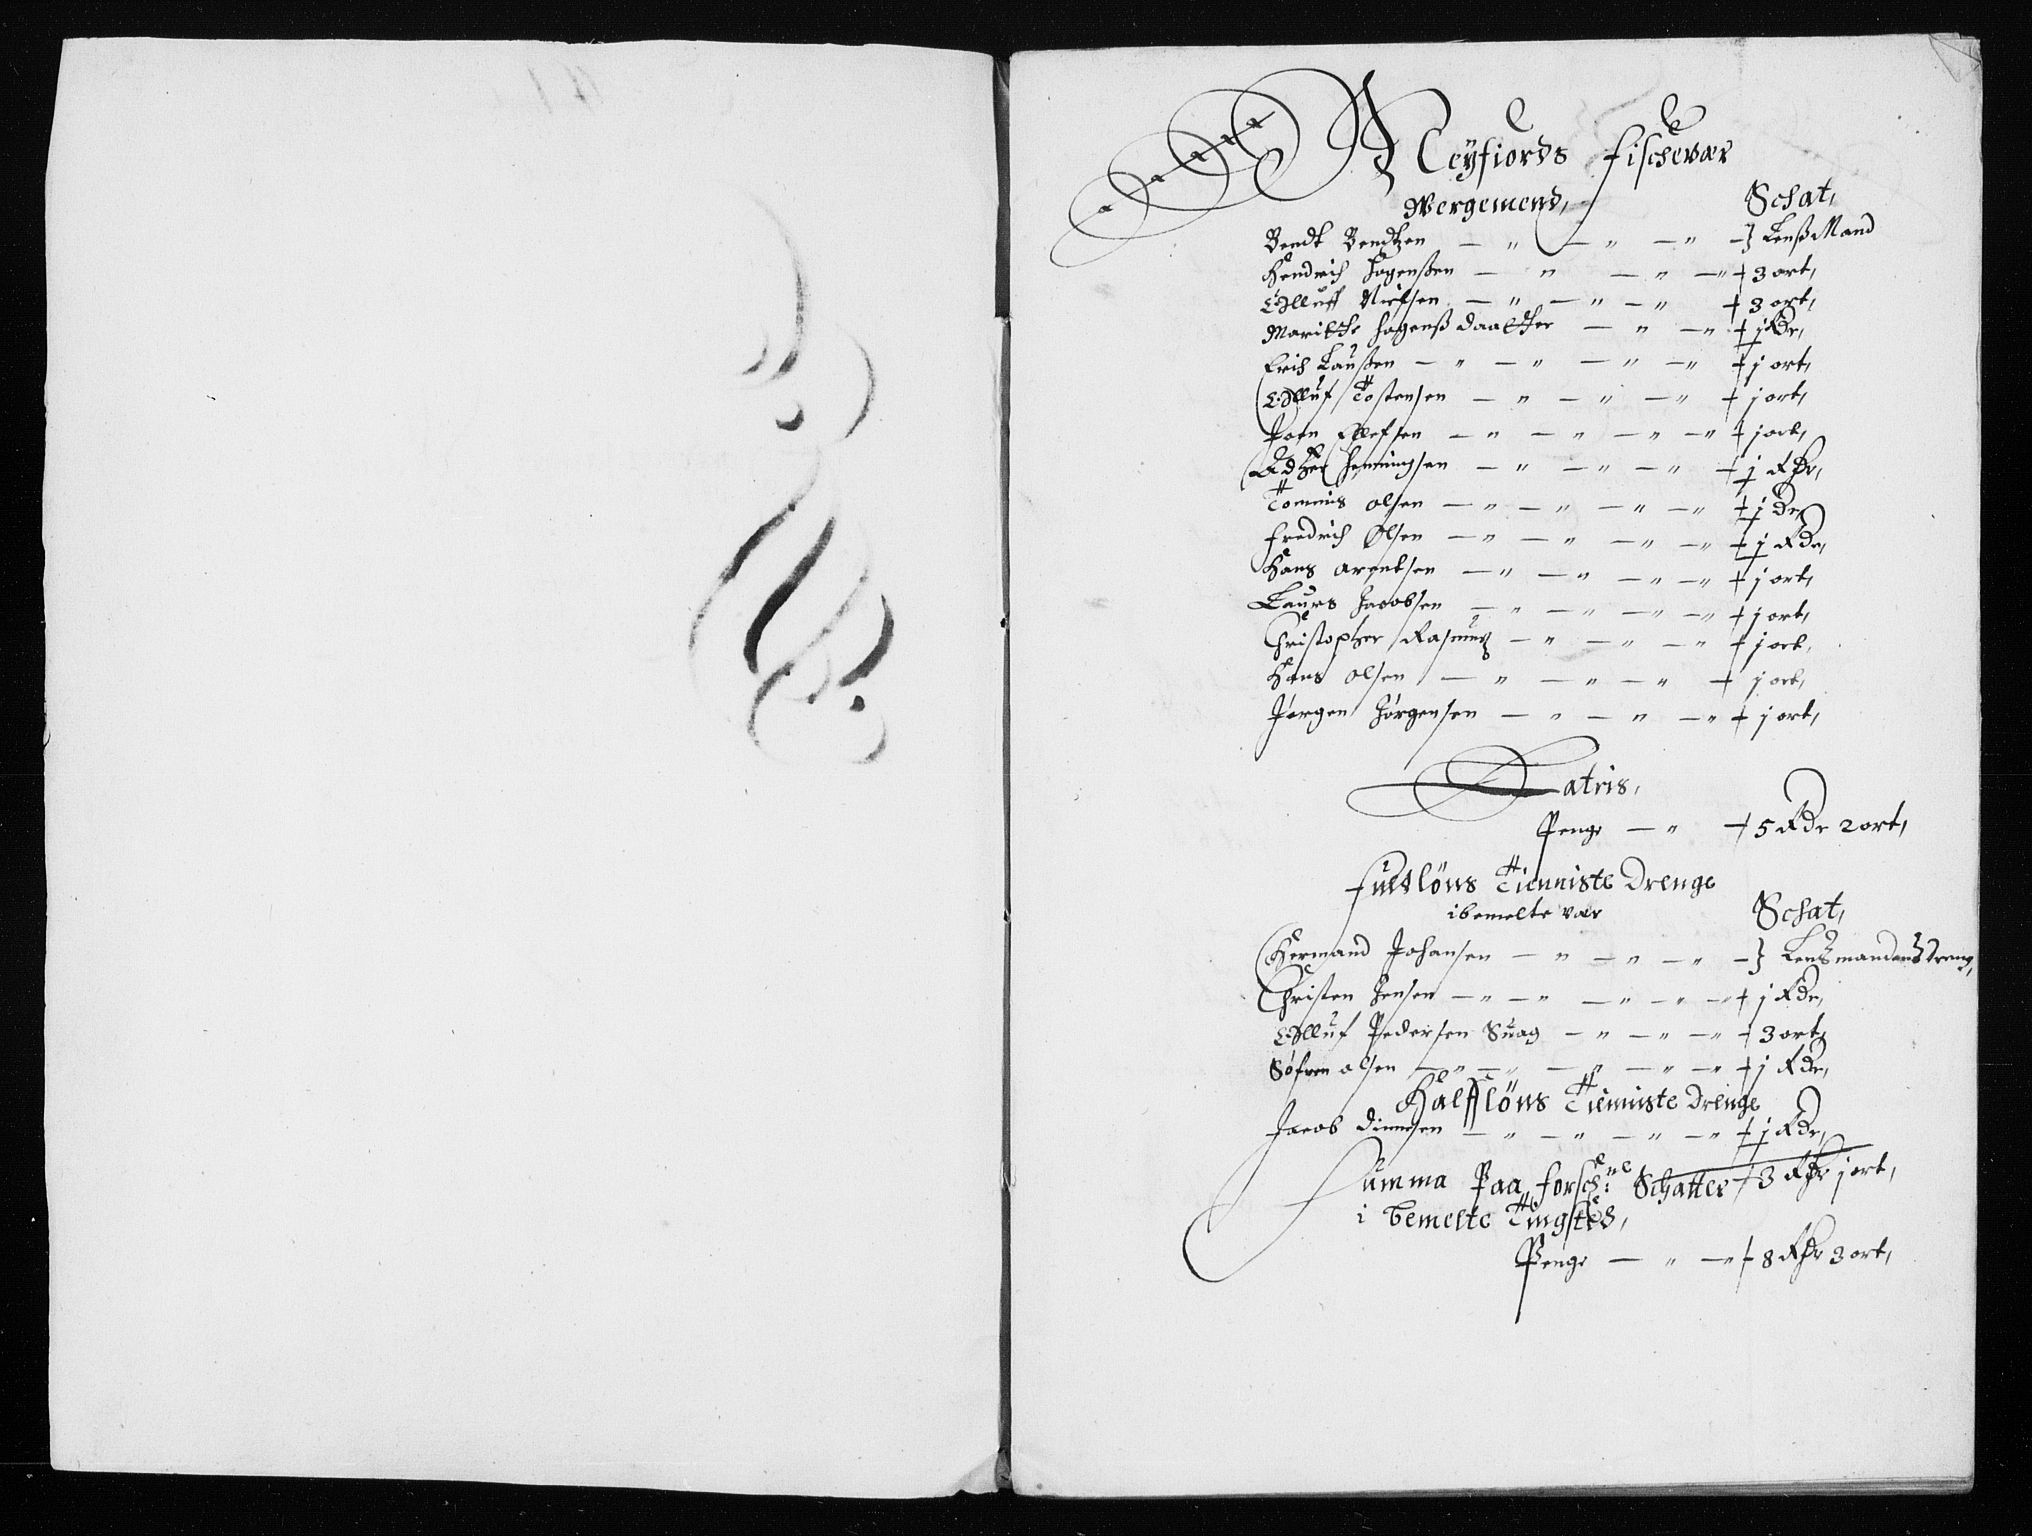 Reÿfiords Fischevær
Wergemend, Schat,
Bendt Bendtzen — " — " — " — } Lenß Mand
Hendrich Hagenßen — " — " — " + 3 ort,
Olluff Nielsen — " — " — " + 3 ort,
Maritthe Hagenß daatther — " — " + j Rdr,
Erich Laurßen — " — " — " — " + j ort,
Olluf Tostensen — " — " — " + j ort,
Joen Ellefsen — " — " — " — " + j ort,
Henningsen — " — " — " + j Rdr,
Tommis olsen — " — " — " — " + j Dr,
Fredrich Olsen — " — " — " — " + j Rdr,
Hans arentsen — " — " — " — " + j ort,
Laurs Jacobsen — " — " — " — " + j ort,
Christopher Rasmusz — " — " — " + j ort,
Hans olsen — " — " — " + j ort,
Jørgen Jørgensen — " — " — " + j ort,
Latris,
Penge — " + 5 Rdr 2 ort,
Fuldlöns Tienniste Drenge
i bemelte vær Schat,
Hermand Johansen — " — " — " — } Lensmandens Dreng,
Christen Jensen — " — " — " — " — " + j Rdr,
Olluf Pedersen Suag — " — " — " + 3 ort,
Söfren olsen — " — " — " — " — " + j Rdr,
Halfflöns Tienniste Drenge
Jacob dinnesen — " — " — " — " + j Rdr,
Summa Paa forschne Schatter + 3 Rdr j ort,
i bemelte Tingsted,
Penge — " — " + 8 Rdr 3 ort,